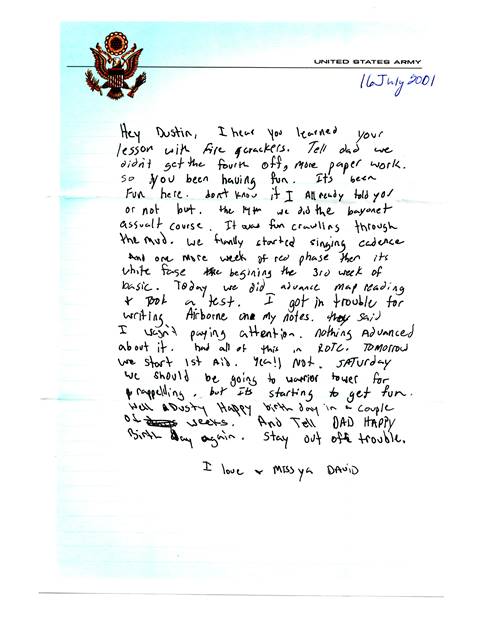 UNITED STATES ARMY
16 July 2001
Hey Dustin, I hear you learned your
lesson with fire crackers. Tell dad we
didn't get the fourth off, more paper work.
so you been having fun. Its been
Fun here. don't know if I All ready told you
or not but. the we did the bayonet
assualt course. It was fun crawling through
the mud. we finally started singing cadence
And one more week of red phase then its
white fase the begining the 3rd week of
basic. Today we did advance map reading
+ took a test. I got in trouble for
writing Airborne one my notes. they said
I wasn't paying attention. nothing Advanced
about it. had all of this in ROTC. Tomorrow
we start 1st Aid. Yea!! Not. Saturday
we should be going to warrior tower for
rappelling. but Its starting to get fun.
Well Dusty Happy birth day in a couple
of weeks. And Tell DAD HAPPY
Birth day again. Stay out off trouble.
I love + Miss ya DAVID